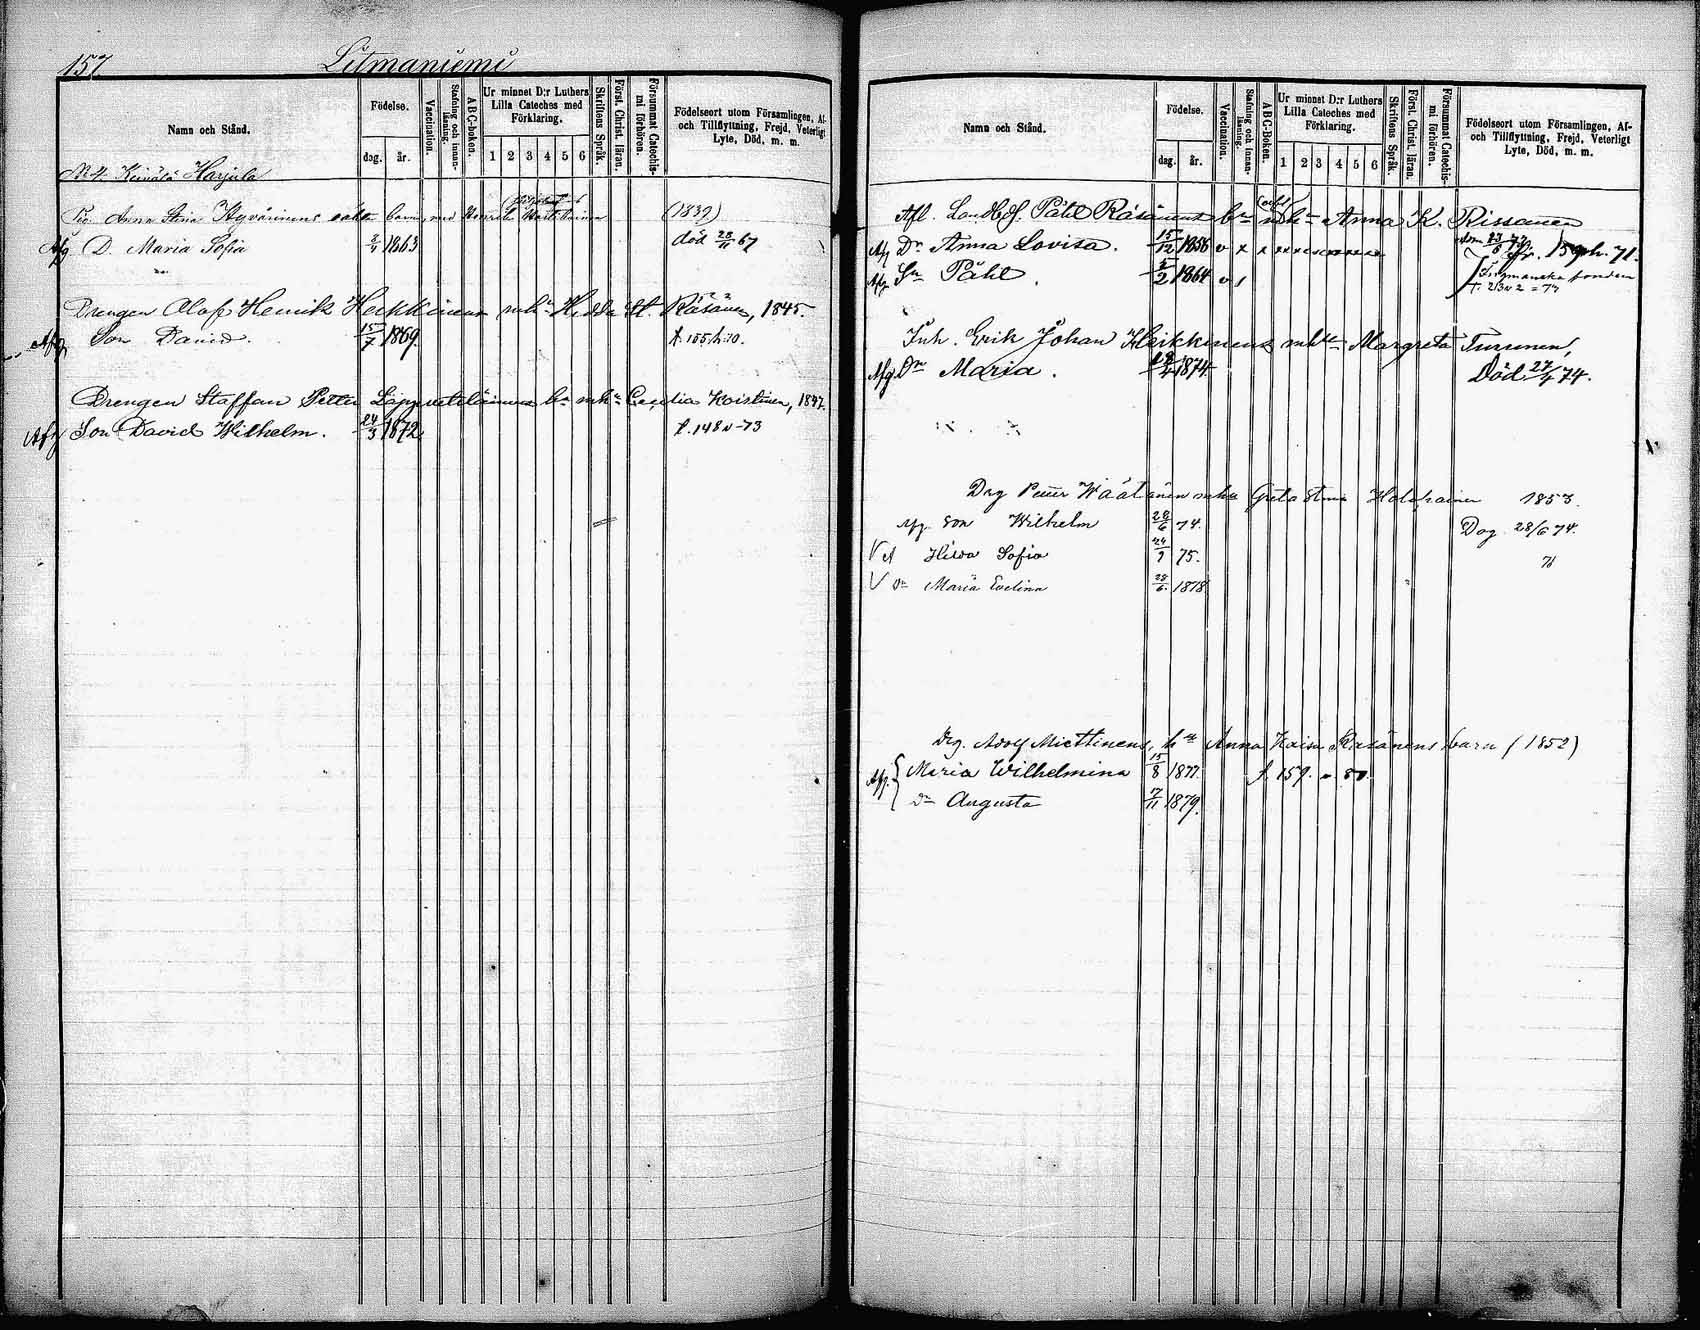 157.
Litmaniemi
Namn och Stånd.
Födelse.
dag.
år.
Vaccination.
Stafning och innanläsning.
ABC-boken.
Ur minnet D:r Luthers Lilla Cateches med Förklaring.
1 2 3 4 5 6
Skriftens Språk.
Först. Christ. läran.
Försummat Catechismi förhören.
Födelseort utom Församlingen, Af- och Tillflyttning, Frejd, Veterligt Lyte, Död, m. m.
Harjula
Anna Stina Hyvärinens barn med Henrik (1839)
Afg D. Maria Sofia 2/4 1863 död 28/11 67
Drengen Olof Henrik Heikkinens mh:n Hedda St. Räsänen, 1845.
Afg Son David. 15/7 1869. f. 155 h. 70.
Drengen Staffan Petter Lappveteläinens b:n mh:n Cecilia Koistinen, 1847.
Afg Son David Wilhelm. 24/3 1872 f. 148 v -73
Namn och Stånd.
Födelse.
dag.
år.
Vaccination.
Stafning och innanläsning.
ABC-Boken.
Ur minnet D:r Luthers Lilla Cateches med Förklaring.
1 2 3 4 5 6
Skriftens Språk.
Först. Christ. läran.
Försummat Catechismi förhören.
Födelseort utom Församlingen, Af- och Tillflyttning, Frejd, Veterligt Lyte, Död, m. m.
Afl. Landb. Påhl Räsänens b:n mh:n Anna K. Rissanen
Afg D:r Anna Lovisa. 15/12 1856 v x x 159 h. 71.
Afg Sn Påhl. 2/2 1864 v fonden
Inh. Erik Johan Heikkinens mh:n Margreta Turunen,
Afg. D:r Maria. 1874. Död 27/4 74.
Drg Petter Väätänen mhu Greta Stina Holopainen 1853.
Afg. Son Wilhelm 28/6 74. Dog 28/6 74.
V Hilda Sofia 24/9 75. 76
V D:r Maria Evelina 28/6. 1878
Drg. Adolf Miettinens, h:u Anna Kaisa Räsänens barn (1852)
Afg. Maria Wilhelmina 15/8 1877. f. 159. v 80
D:r Augusta 7/11 1879.